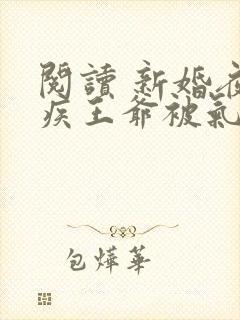 閱讀 新婚夜
疾王爺被氣
包燁華